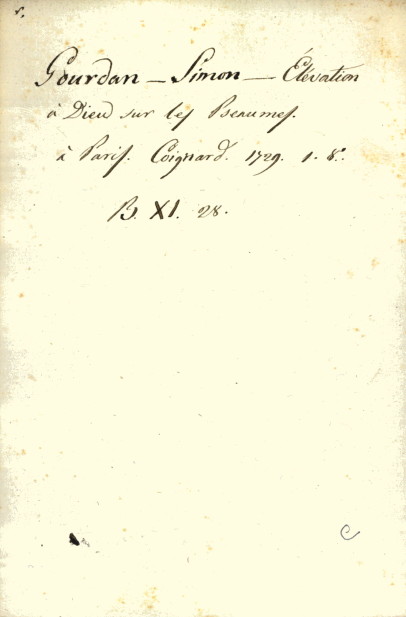 Gourdan — Simon — Élévation
à Dieu sur les Pseaumes.
à Paris. Coignard. 1729. 1. 8°.
B. XI. 28.
C